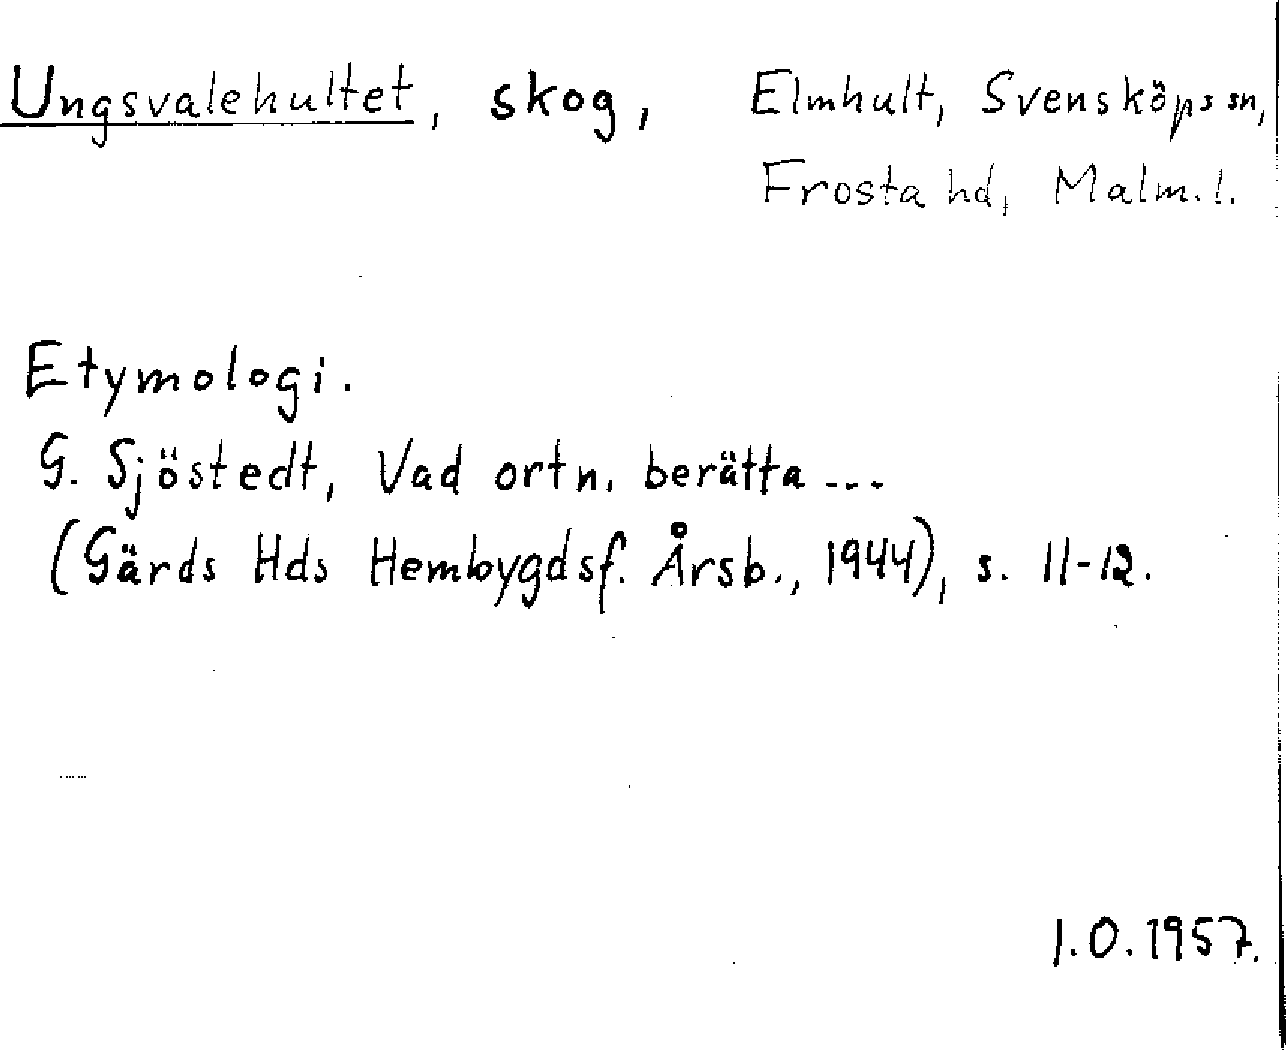 Ungsvalehultet, skog, Elmhult, Svensköps sn,
Frosta hd, Malm. l.
Etymologi.
G. Sjöstedt, Vad ortn. berätta ---
(Gärds Hds Hembygdsf. Årsb., 1944), s. 11-12.
I.O. 1957.